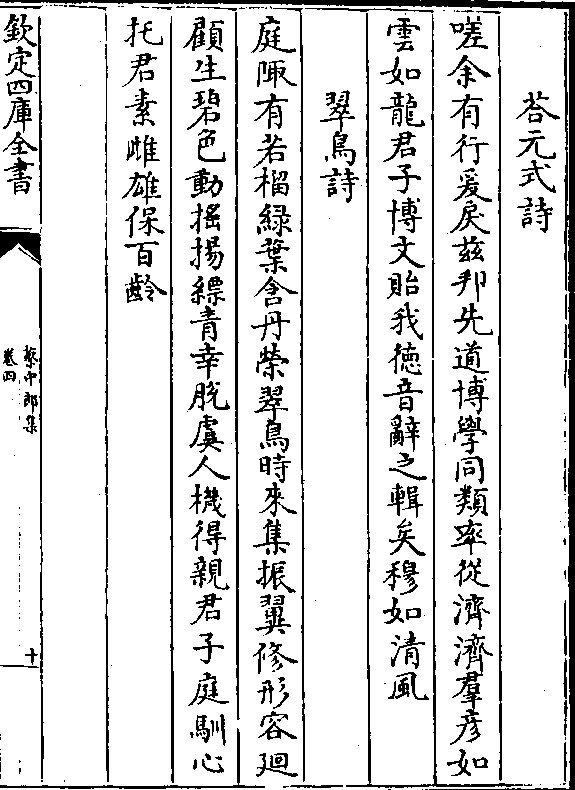 荅元式詩
嗟余有行爰戾兹邦先道博學同類率從濟濟羣彦如
雲如龍君子博文貽我德音辭之輯矣穆如清風
翠鳥詩
庭陬有若榴綠葉含丹榮翠鳥時來集振翼修形容廻
顧生碧色動搖揚縹青幸脫虞人機得親君子庭馴心
托君素雌雄保百齡
欽定四庫全書
蔡中郎集
卷四
十